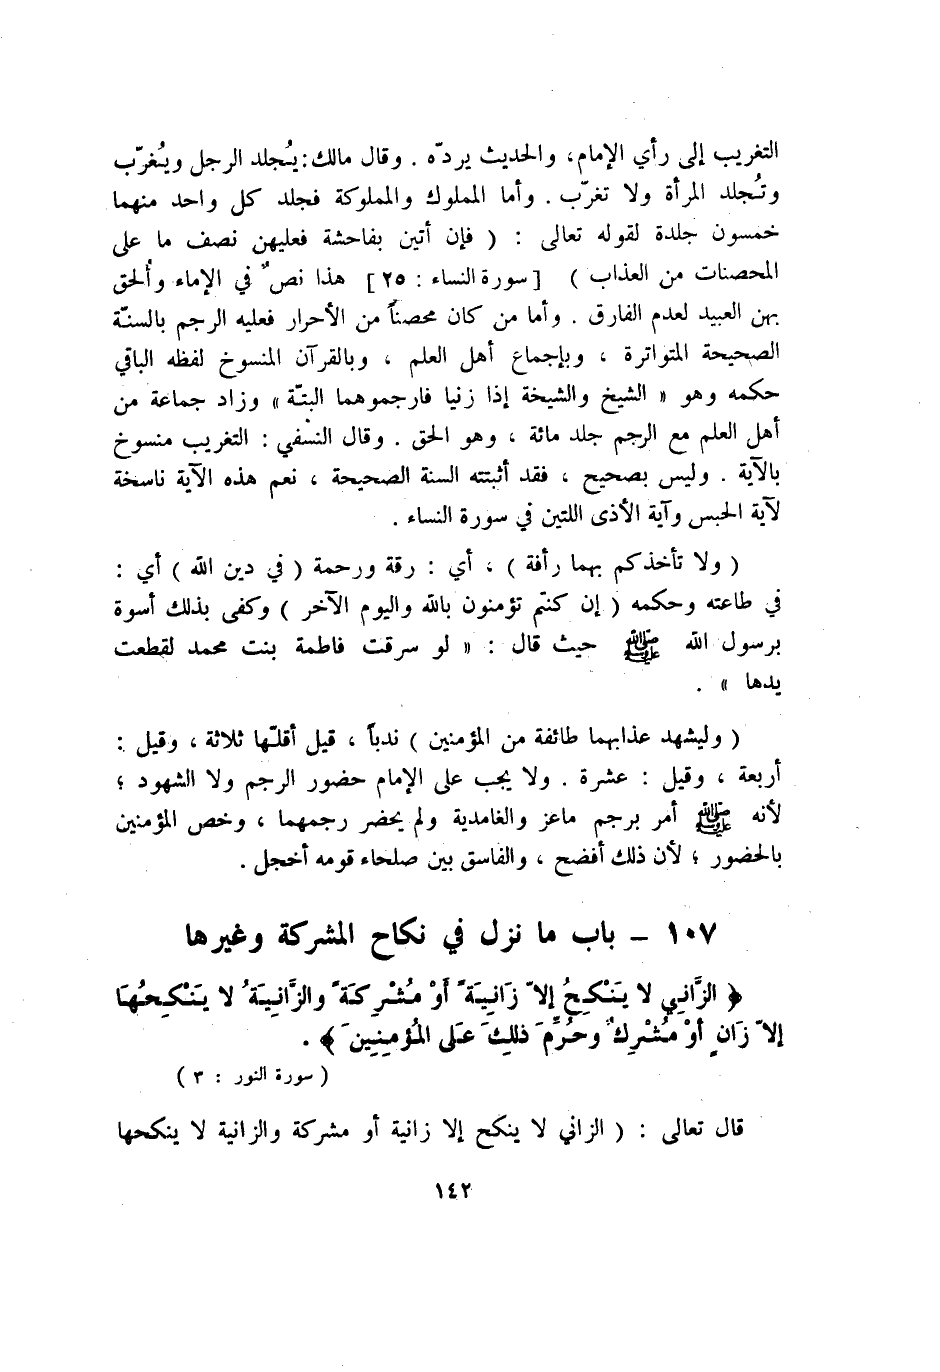 التغريب إلى رأي الإمام، والحديث يردّه . وقال مالك: يُجلد الرجل ويُغرّب
وتُجلد المرأة ولا تغرّب . وأما المملوك والمملوكة فجلد كل واحد منهما
خمسون جلدة لقوله تعالى : ( فإن أتين بفاحشة فعليهن نصف ما على
المحصنات من العذاب ) [ سورة النساء : ٢٥ ] هذا نصٌ في الإماء وأُلحق
بهن العبيد لعدم الفارق . وأما من كان محصناً من الأحرار فعليه الرجم بالسنّة
الصحيحة المتواترة ، وبإجماع أهل العلم ، وبالقرآن المنسوخ لفظه الباقي
حكمه وهو « الشيخ والشيخة إذا زنيا فارجموهما البتّة » وزاد جماعة من
أهل العلم مع الرجم جلد مائة ، وهو الحق . وقال النسفي : التغريب منسوخ
بالآية . وليس بصحيح ، فقد أثبتته السنة الصحيحة ، نعم هذه الآية ناسخة
لآية الحبس وآية الأذى اللتين في سورة النساء .
( ولا تأخذكم بهما رأفة ) ، أي : رقة ورحمة ( في دين الله ) أي :
في طاعته وحكمه ( إن كنتم تؤمنون بالله واليوم الآخر ) وكفى بذلك أسوة
برسول الله ﷺ حيث قال : « لو سرقت فاطمة بنت محمد لقطعت
يدها » .
( وليشهد عذابهما طائفة من المؤمنين ) ندباً ، قيل أقلّها ثلاثة ، وقيل :
أربعة ، وقيل : عشرة . ولا يجب على الإمام حضور الرجم ولا الشهود ؛
لأنه ﷺ أمر برجم ماعز والغامدية ولم يحضر رجمهما ، وخص المؤمنين
بالحضور ؛ لأن ذلك أفضح ، والفاسق بين صلحاء قومه أخجل .
١٠٧ – باب ما نزل في نكاح المشركة وغيرها
﴿ الزَّانِي لا يَنْكِحُ إلاّ زَانِيَةً أوْ مُشْرِكَةً والزَّانِيَةُ لا يَنْكِحُهَا
إلاّ زَانٍ أوْ مُشْرِكٌ وحُرِّمَ ذلِكَ عَلى المُؤمِنِينَ ﴾ .
( سورة النور : ٣ )
قال تعالى : ( الزاني لا ينكح إلا زانية أو مشركة والزانية لا ينكحها
١٤٢